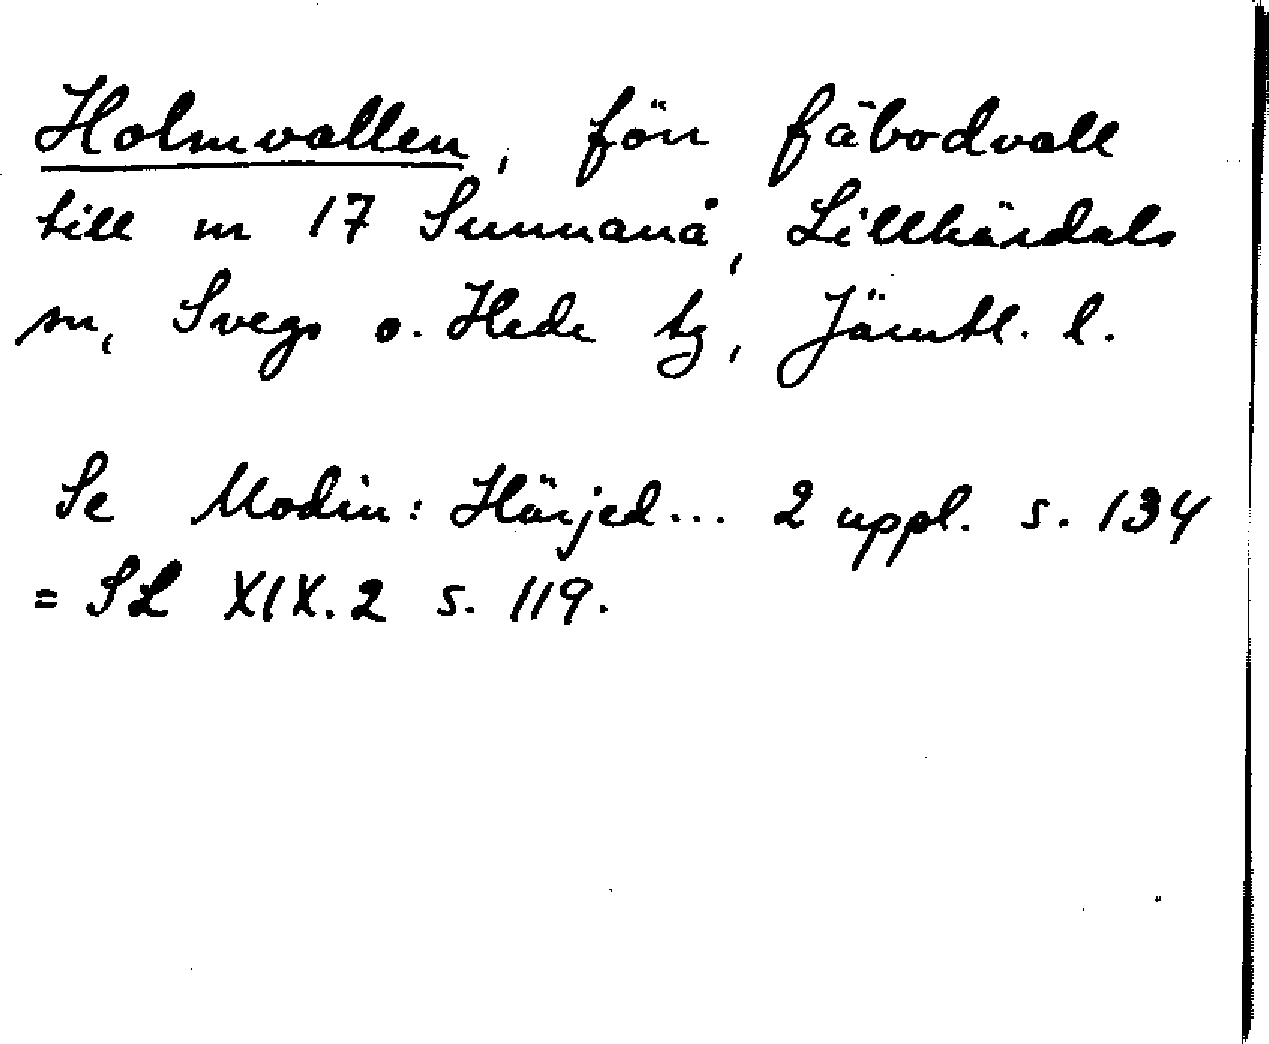 Holmvallen, förr fäbodvall
till nr 17 Sunnanå, Lillhärdals
sn, Svegs o. Hede tg, Jämtl. l.
Se Modin: Härjed... 2 uppl. s. 134
= SL XIX.2 s. 119.